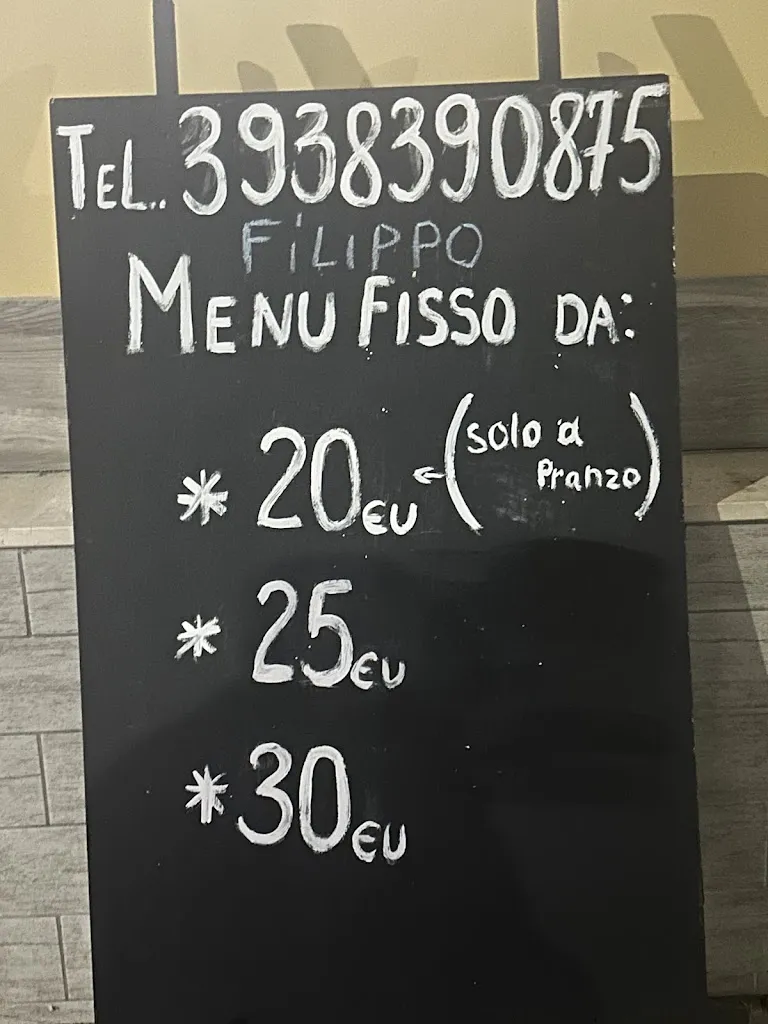 TEL.. 3938390875
FiLiPPO
MENU FISSO DA:
* 20 €U ← (solo a
Pranzo)
* 25 €U
* 30 €U